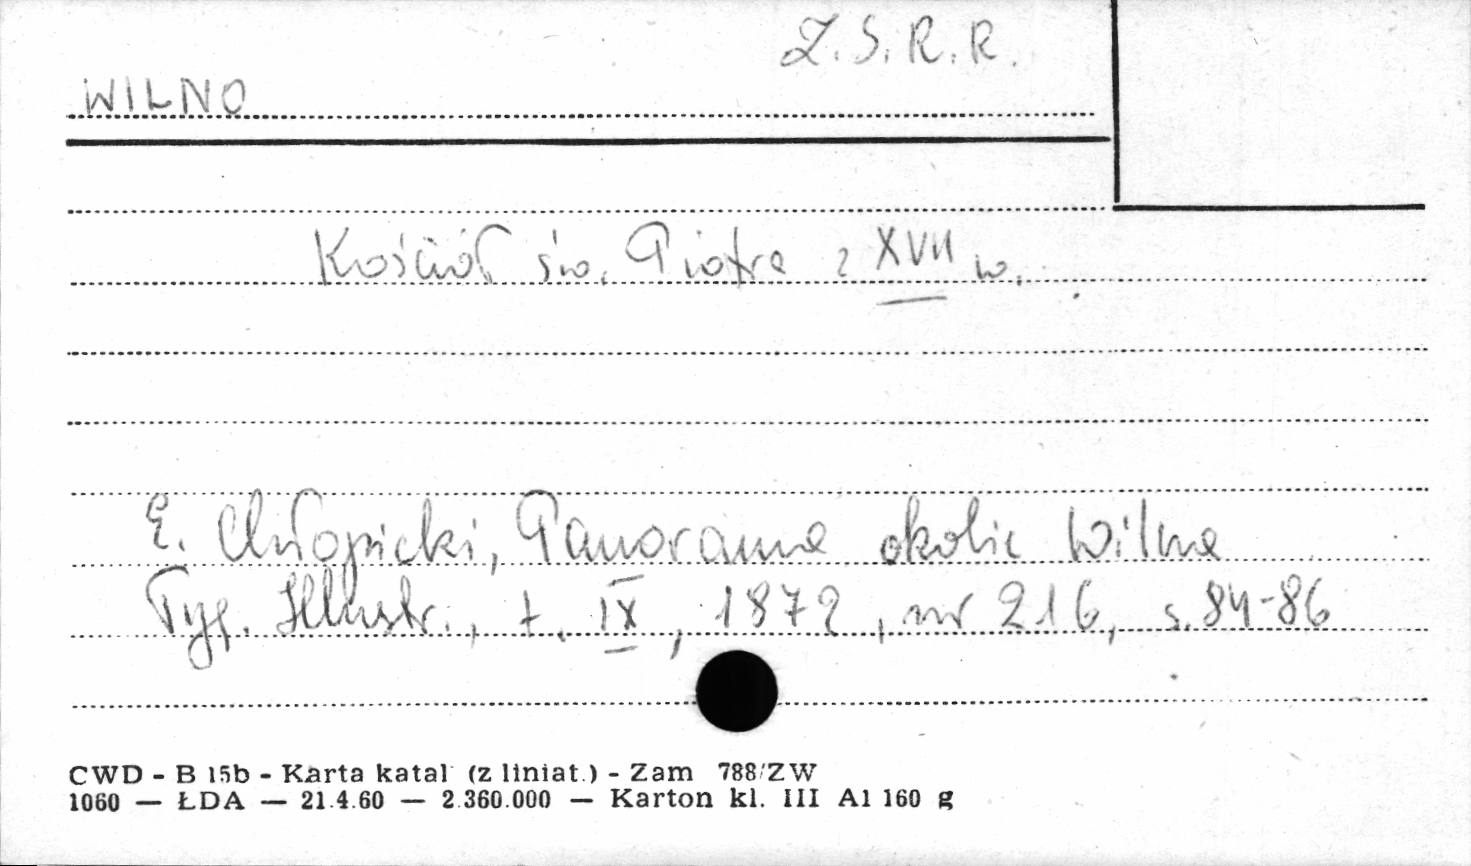 Z.S.R.R.
WILNO
Kościół św. Piotra z XVII w.
E. Chłopicki, Panorama okolic Wilna
Tyg. Illustr., t. IX, 1872, nr 216, s. 84-86
CWD - B 15b - Karta katal (z liniat.) - Zam 788/ZW
1060 — ŁDA — 21.4.60 — 2.360.000 — Karton kl. III A1 160 g